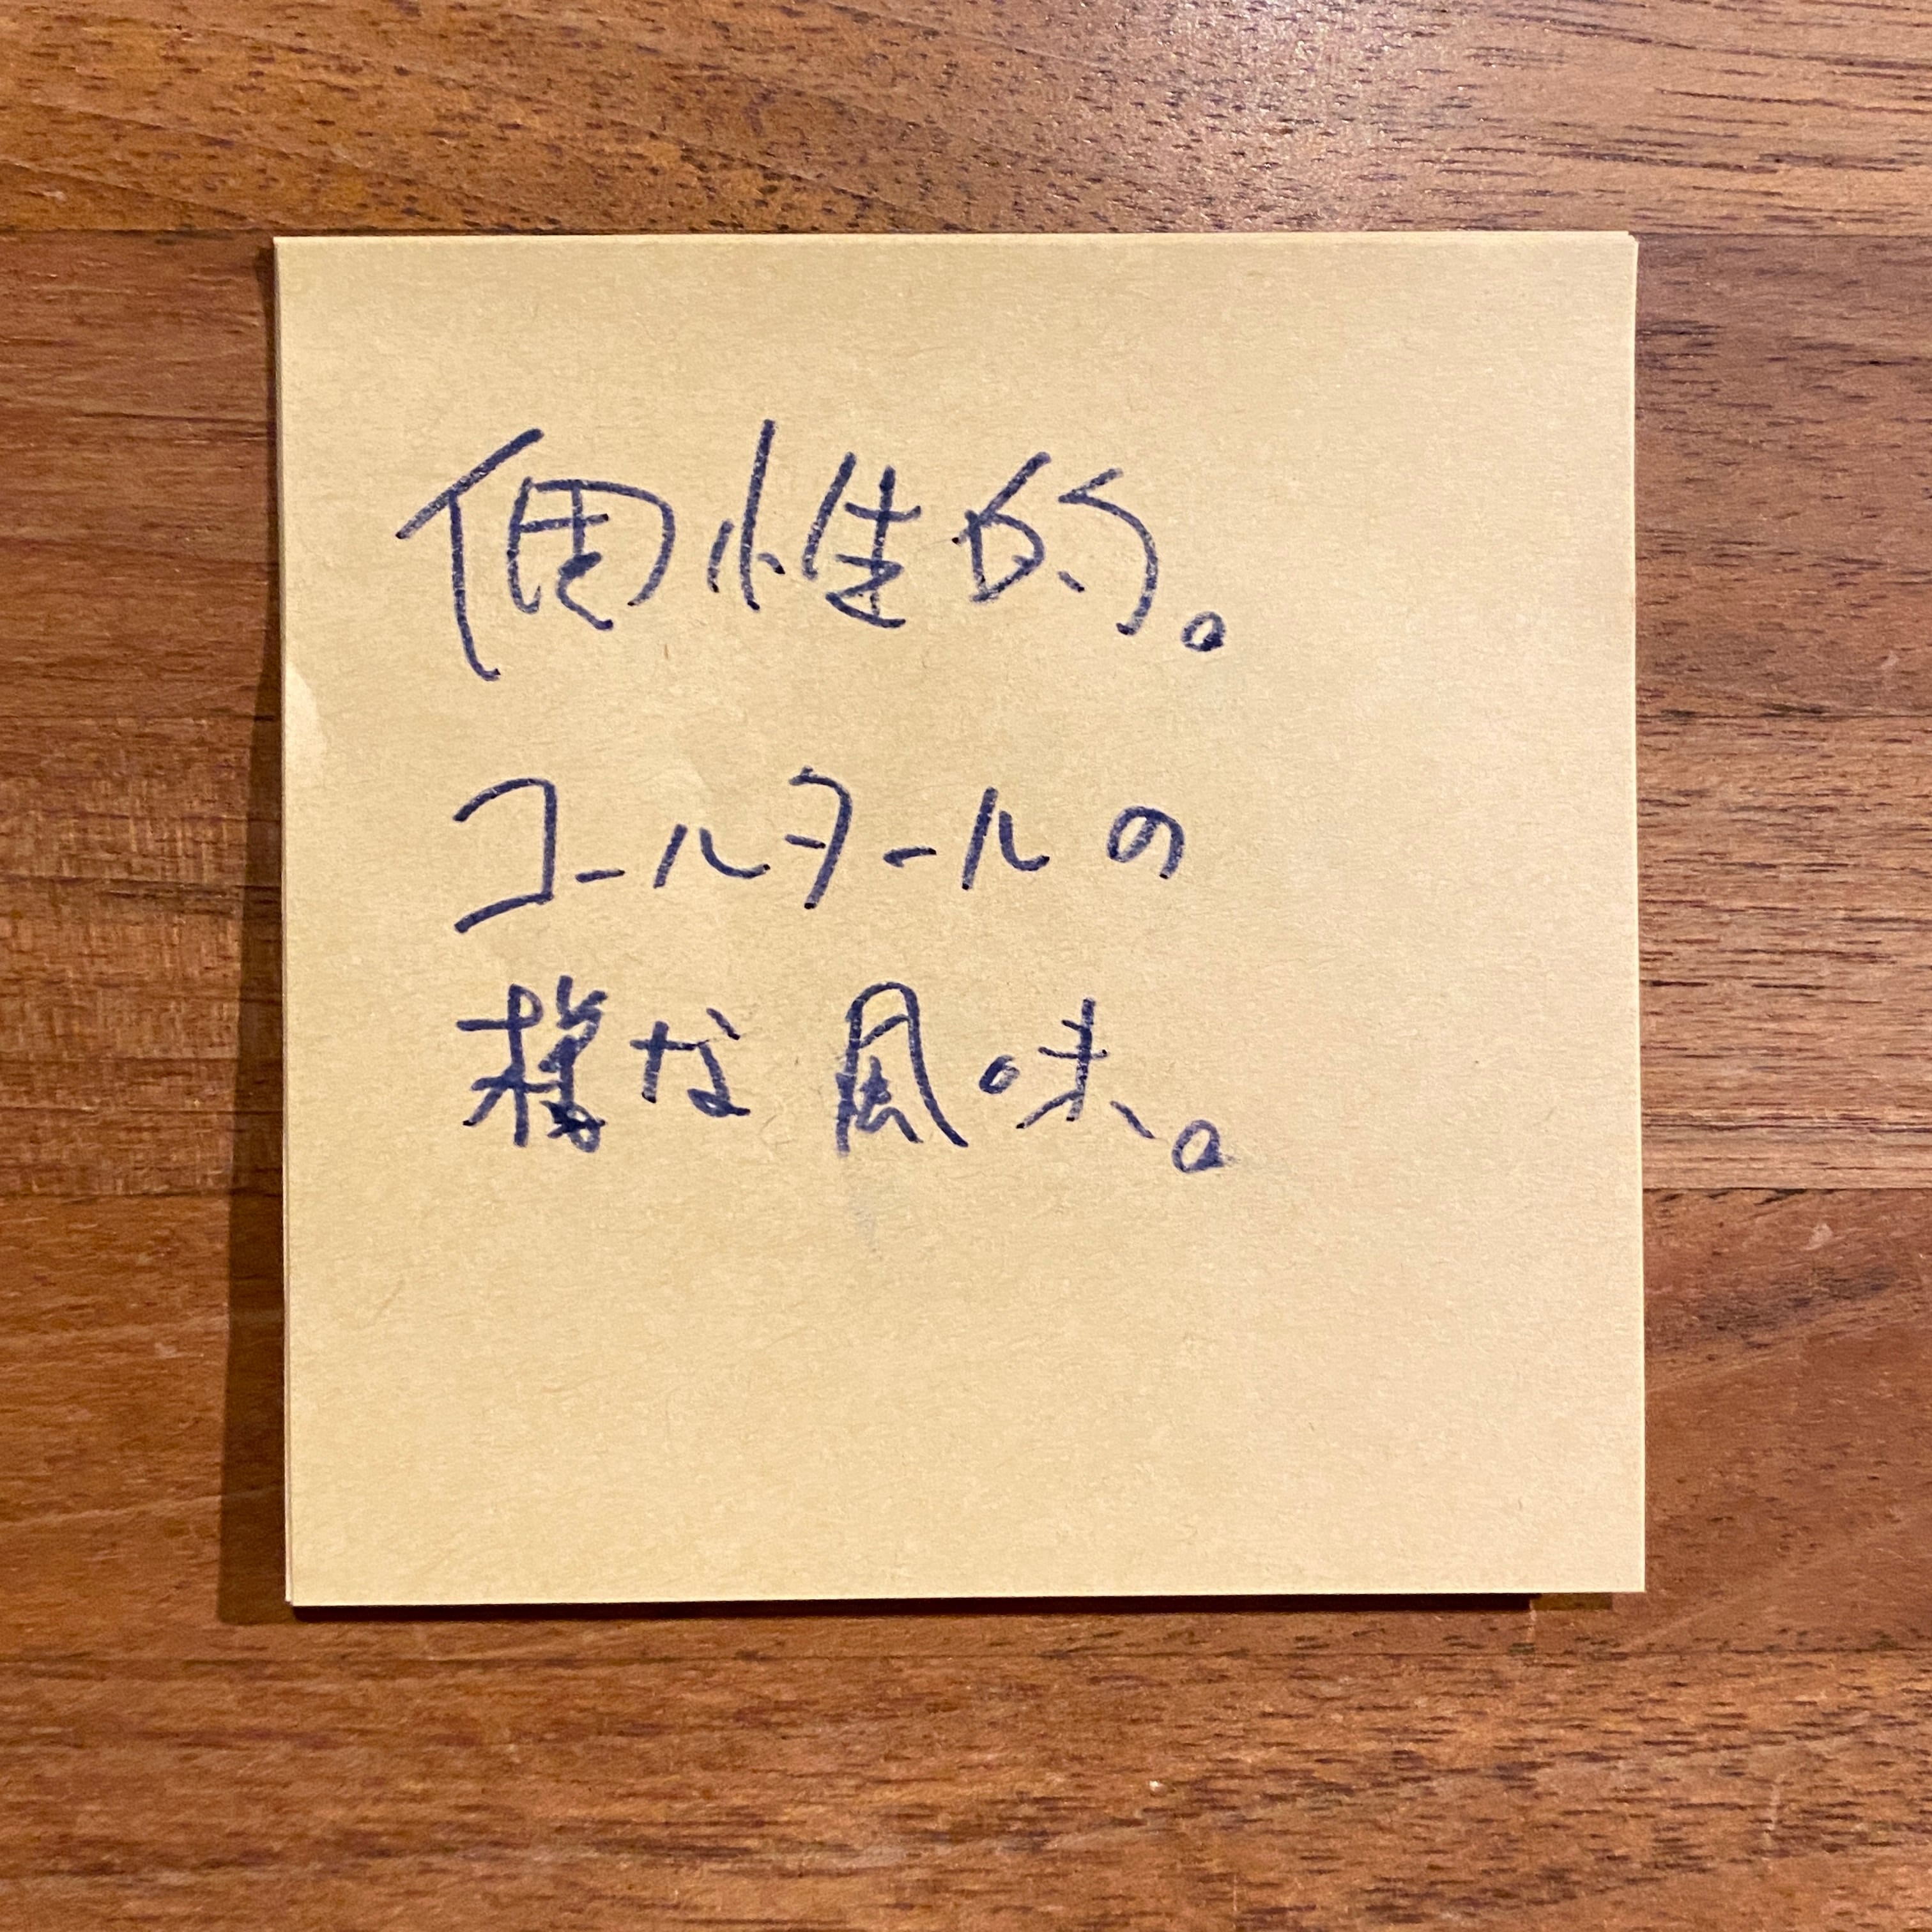 個性的。
コールタールの
様な風味。